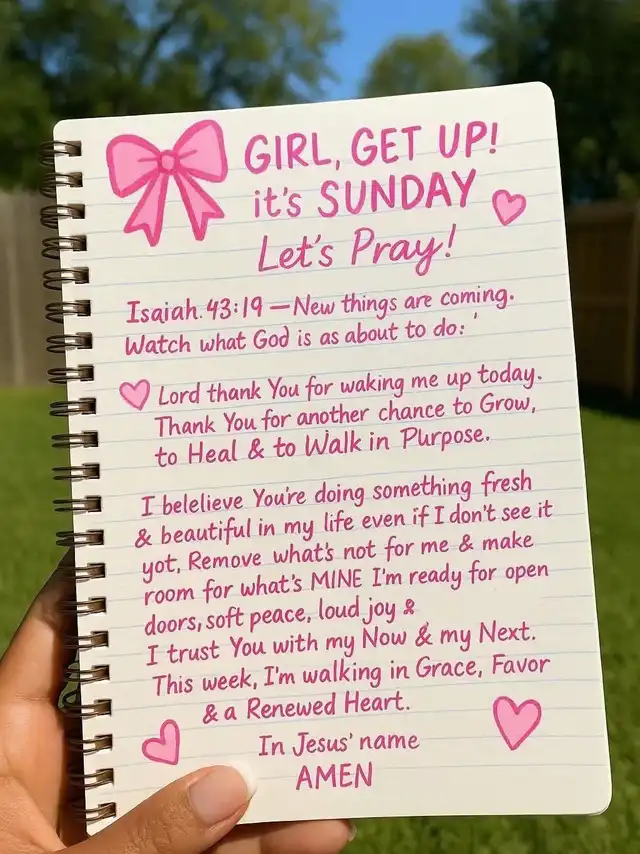 GIRL, GET UP!
it's SUNDAY
Let's Pray!
Isaiah. 43:19 — New things are coming.
Watch what God is as about to do: '
Lord thank You for waking me up today.
Thank You for another chance to Grow,
to Heal & to Walk in Purpose.
I belelieve You're doing something fresh
& beautiful in my life even if I don't see it
yot, Remove what's not for me & make
room for what's MINE I'm ready for open
doors, soft peace, loud joy &
I trust You with my Now & my Next.
This week, I'm walking in Grace, Favor
& a Renewed Heart.
In Jesus' name
AMEN